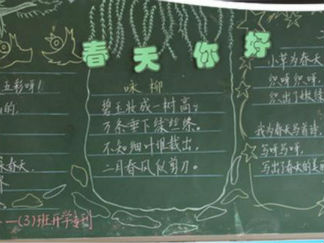 春天你好
五彩呀！
的，
春天。
咏柳
碧玉妆成一树高，
万条垂下绿丝绦。
不知细叶谁裁出，
二月春风似剪刀。
小草为春天
织呀织呀，
织出了嫩绿
我为春天写首诗，
写呀写呀，
写出了春天的美丽
一(3)班开学专刊